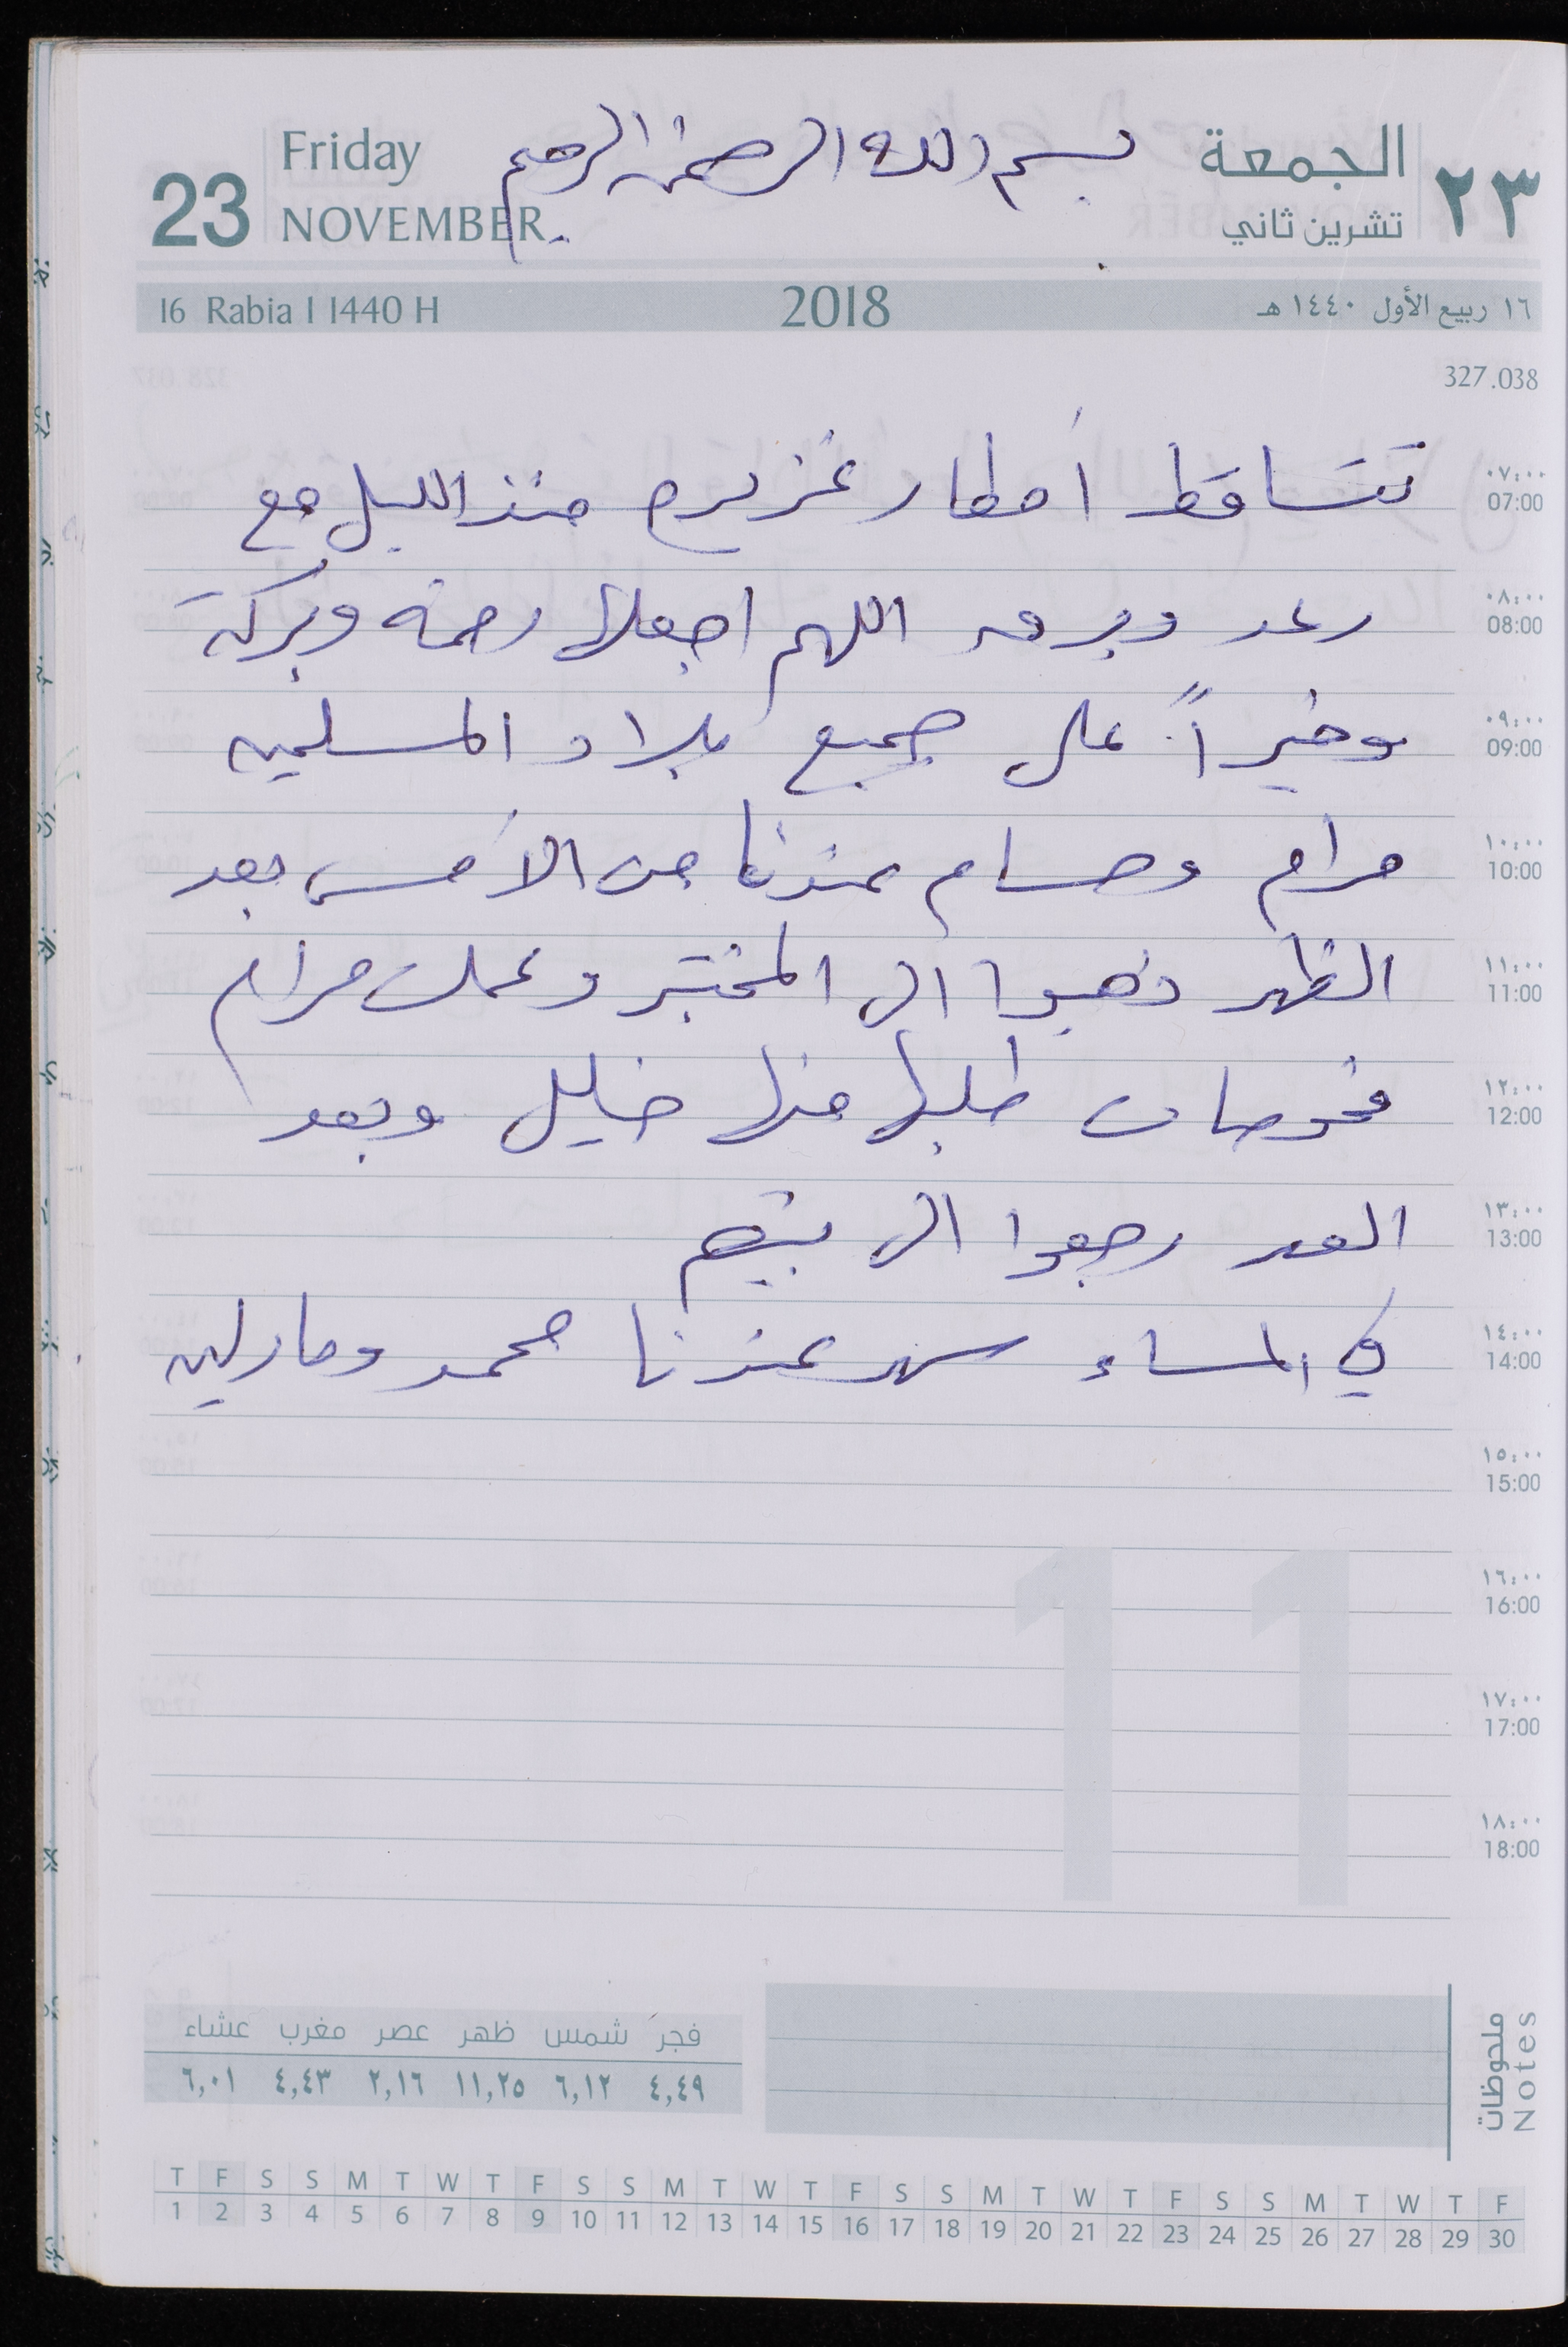 23
Friday
NOVEMBER
بسم الله الرحمن الرحيم
الجمعة
تشرين ثاني
٢٣
16 Rabia I 1440 H
2018
١٦ ربيع الأول ١٤٤٠ هـ
327.038
٠٧:٠٠
07:00
تتساقط أمطار غزيره منذ الليل مع
٠٨:٠٠
08:00
رعد وبرق اللهم اجعلها رحمة وبركة
٠٩:٠٠
09:00
وخيراً على جميع بلاد المسلمين
١٠:٠٠
10:00
مرام وحسام عندنا من الأمس بعد
١١:٠٠
11:00
الظهر ذهبوا الى المختبر وعملت مرام
١٢:٠٠
12:00
فحوصات طلبها منها خليل وبعد
١٣:٠٠
13:00
العصر رجعوا الى بيتهم
١٤:٠٠
14:00
في المساء سهر عندنا محمد ومارلين
١٥:٠٠
15:00
١٦:٠٠
16:00
١٧:٠٠
17:00
١٨:٠٠
18:00
11
ملحوظات
Notes
فجر شمس ظهر عصر مغرب عشاء
٤,٤٩ ٦,١٢ ١١,٢٥ ٢,١٦ ٤,٤٣ ٦,٠١
T F S S M T W T F S S M T W T F S S M T W T F S S M T W T F
1 2 3 4 5 6 7 8 9 10 11 12 13 14 15 16 17 18 19 20 21 22 23 24 25 26 27 28 29 30